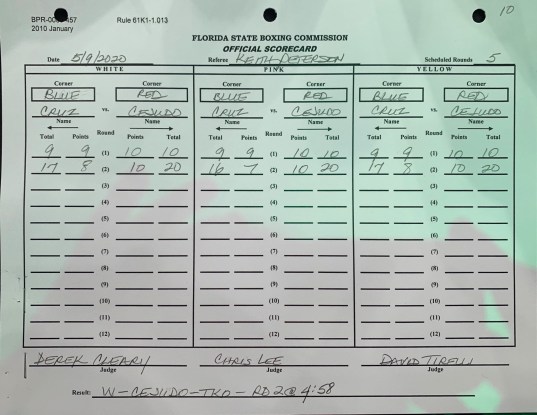 10
BPR-00 457 Rule 61K1-1.013
2010 January
FLORIDA STATE BOXING COMMISSION
OFFICIAL SCORECARD
Date 5/9/2020 Referee KEITH PETERSON Scheduled Rounds 5
WHITE PINK YELLOW
Corner Corner Corner Corner Corner Corner
BLUE RED BLUE RED BLUE RED
CRUZ vs. CEJUDO CRUZ vs. CEJUDO CRUZ vs. CEJUDO
Name Name Name Name Name Name
Total Points Round Points Total Total Points Round Points Total Total Points Round Points Total
9 9 (1) 10 10 9 9 (1) 10 10 9 9 (1) 10 10
17 8 (2) 10 20 16 7 (2) 10 20 17 8 (2) 10 20
(3) (3) (3)
(4) (4) (4)
(5) (5) (5)
(6) (6) (6)
(7) (7) (7)
(8) (8) (8)
(9) (9) (9)
(10) (10) (10)
(11) (11) (11)
(12) (12) (12)
DEREK CLEARY CHRIS LEE DAVID TIRELLI
Judge Judge Judge
Result: W-CEJUDO-TKO-RD2@4:58